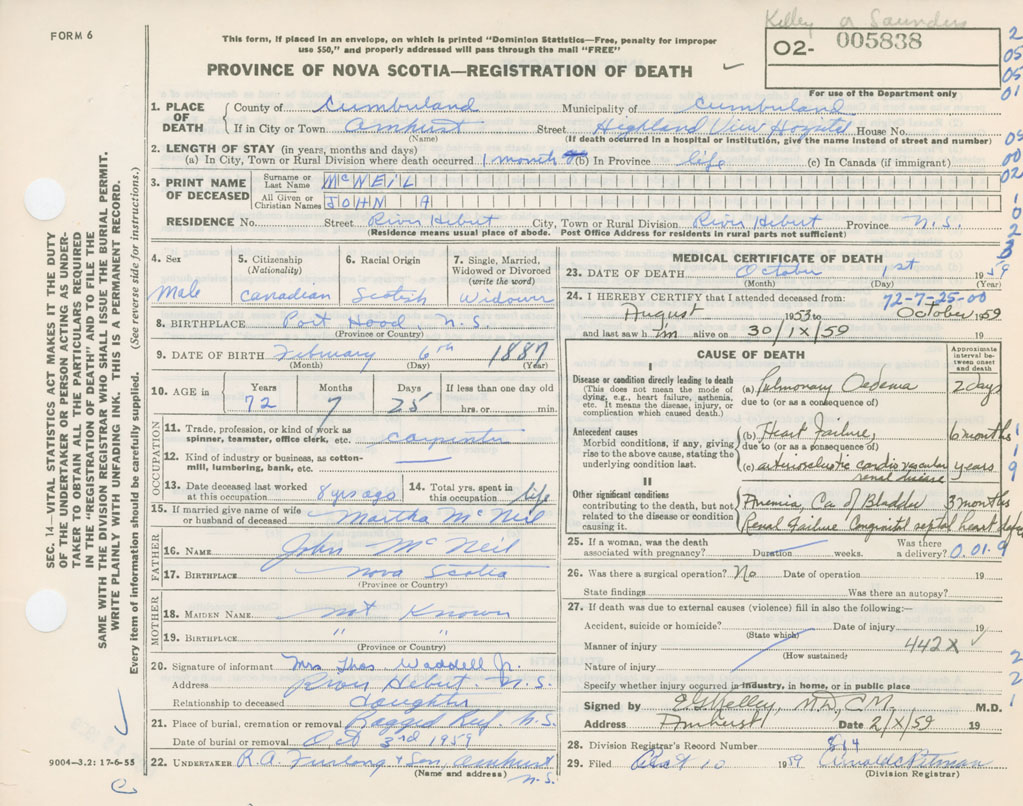 Kelley or Saunders
FORM 6
This form, if placed in an envelope, on which is printed "Dominion Statistics—Free, penalty for improper
use $50," and properly addressed will pass through the mail "FREE"
02- 005838
PROVINCE OF NOVA SCOTIA—REGISTRATION OF DEATH
For use of the Department only
1. PLACE OF DEATH
County of Cumberland Municipality of Cumberland
If in City or Town Amherst Street Highland View Hospital House No.
(Name) (If death occurred in a hospital or institution, give the name instead of street and number)
2. LENGTH OF STAY (in years, months and days)
(a) In City, Town or Rural Division where death occurred 1 month (b) In Province life (c) In Canada (if immigrant)
3. PRINT NAME OF DECEASED
Surname or Last Name McNEIL
All Given or Christian Names JOHN A
RESIDENCE No. Street River Hebert City, Town or Rural Division River Hebert Province N.S.
(Residence means usual place of abode. Post Office Address for residents in rural parts not sufficient)
4. Sex
Male
5. Citizenship (Nationality)
Canadian
6. Racial Origin
Scotish
7. Single, Married, Widowed or Divorced (write the word)
Widower
8. BIRTHPLACE Port Hood N.S.
(Province or Country)
9. DATE OF BIRTH February 6th 1887
(Month) (Day) (Year)
10. AGE in
Years Months Days If less than one day old
72 7 25 hrs. or min.
OCCUPATION
11. Trade, profession, or kind of work as
spinner, teamster, office clerk, etc. Carpenter
12. Kind of industry or business, as cotton-
mill, lumbering, bank, etc. —
13. Date deceased last worked
at this occupation 8 yrs ago
14. Total yrs. spent in
this occupation life
15. If married give name of wife
or husband of deceased Martha McNeil
FATHER
16. NAME John McNeil
17. BIRTHPLACE Nova Scotia
(Province or Country)
MOTHER
18. MAIDEN NAME not Known
19. BIRTHPLACE " "
(Province or Country)
20. Signature of informant Mrs Thos Waddell Jr.
Address River Hebert. N.S.
Relationship to deceased daughter
21. Place of burial, cremation or removal Ragged Reef N.S.
Date of burial or removal Oct 3rd 1959
22. UNDERTAKER R.A. Furlong & Son, Amherst
(Name and address) N.S.
9004—3.2: 17-6-55
MEDICAL CERTIFICATE OF DEATH
23. DATE OF DEATH October 1st 1959
(Month) (Day) (Year)
24. I HEREBY CERTIFY that I attended deceased from: 72-7-25-00
August 1953 to October 1959
and last saw h im alive on 30/IX/59 19
CAUSE OF DEATH
Approximate interval between onset and death
I
Disease or condition directly leading to death
(This does not mean the mode of
dying, e.g., heart failure, asthenia,
etc. It means the disease, injury, or
complication which caused death.)
(a) Pulmonary Oedema 2 days
due to (or as a consequence of)
Antecedent causes
Morbid conditions, if any, giving
rise to the above cause, stating the
underlying condition last.
(b) Heart Failure, 6 months
due to (or as a consequence of)
(c) arteriosclerotic cardio vascular years
renal disease
II
Other significant conditions
contributing to the death, but not
related to the disease or condition
causing it.
Anemia, Ca of Bladder 3 months
Renal Failure Congenital septal heart defect
25. If a woman, was the death
associated with pregnancy? Duration weeks.
Was there
a delivery? 0.01.9
26. Was there a surgical operation? No Date of operation 19
State findings Was there an autopsy?
27. If death was due to external causes (violence) fill in also the following:—
Accident, suicide or homicide? Date of injury 19
(State which)
Manner of injury 442X
(How sustained)
Nature of injury
Specify whether injury occurred in industry, in home, or in public place
Signed by E G Kelley, M.D., C.M. M.D.
Address Amherst Date 2/X/59 19
28. Division Registrar's Record Number 814
29. Filed Oct 10 1959
(Division Registrar)
SEC. 14—VITAL STATISTICS ACT MAKES IT THE DUTY
OF THE UNDERTAKER OR PERSON ACTING AS UNDER-
TAKER TO OBTAIN ALL THE PARTICULARS REQUIRED
IN THE "REGISTRATION OF DEATH" AND TO FILE THE
SAME WITH THE DIVISION REGISTRAR WHO SHALL ISSUE THE BURIAL PERMIT.
WRITE PLAINLY WITH UNFADING INK. THIS IS A PERMANENT RECORD.
Every item of information should be carefully supplied. (See reverse side for instructions.)
2
05
05
01
05
00
02
1
0
2
3
1
1
9
2
2
1